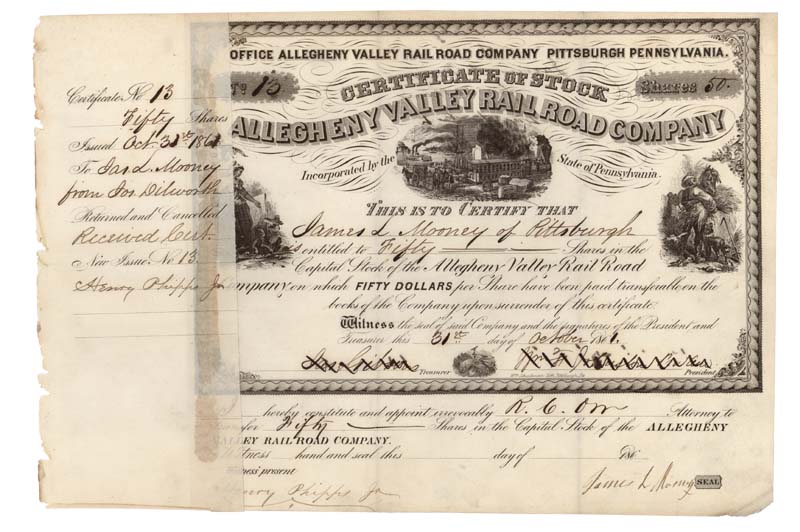 Certificate No 13
Fifty Shares
Issued Oct 31st 1861
To Jas L. Mooney
from Jos Dilworth
Returned and Cancelled
Received Cert.
New Issue No. 13
Henry Phipps Jr
OFFICE ALLEGHENY VALLEY RAIL ROAD COMPANY PITTSBURGH PENNSYLVANIA.
No 13
CERTIFICATE OF STOCK
Shares 50.
ALLEGHENY VALLEY RAIL ROAD COMPANY
Incorporated by the State of Pennsylvania.
THIS IS TO CERTIFY THAT
James L Mooney of Pittsburgh
is entitled to Fifty Shares in the
Capital Stock of the Allegheny Valley Rail Road
Company on which FIFTY DOLLARS per Share have been paid transferable on the
books of the Company upon surrender of this certificate.
Witness the seal of said Company and the signatures of the President and
Treasurer this 31st day of October 1861.
Treasurer
President
hereby constitute and appoint irrevocably R. C. Orr Attorney to
Fifty Shares in the Capital Stock of the ALLEGHENY
VALLEY RAIL ROAD COMPANY.
Witness hand and seal this day of 186
Witness present
Henry Phipps Jr
James L Mooney SEAL